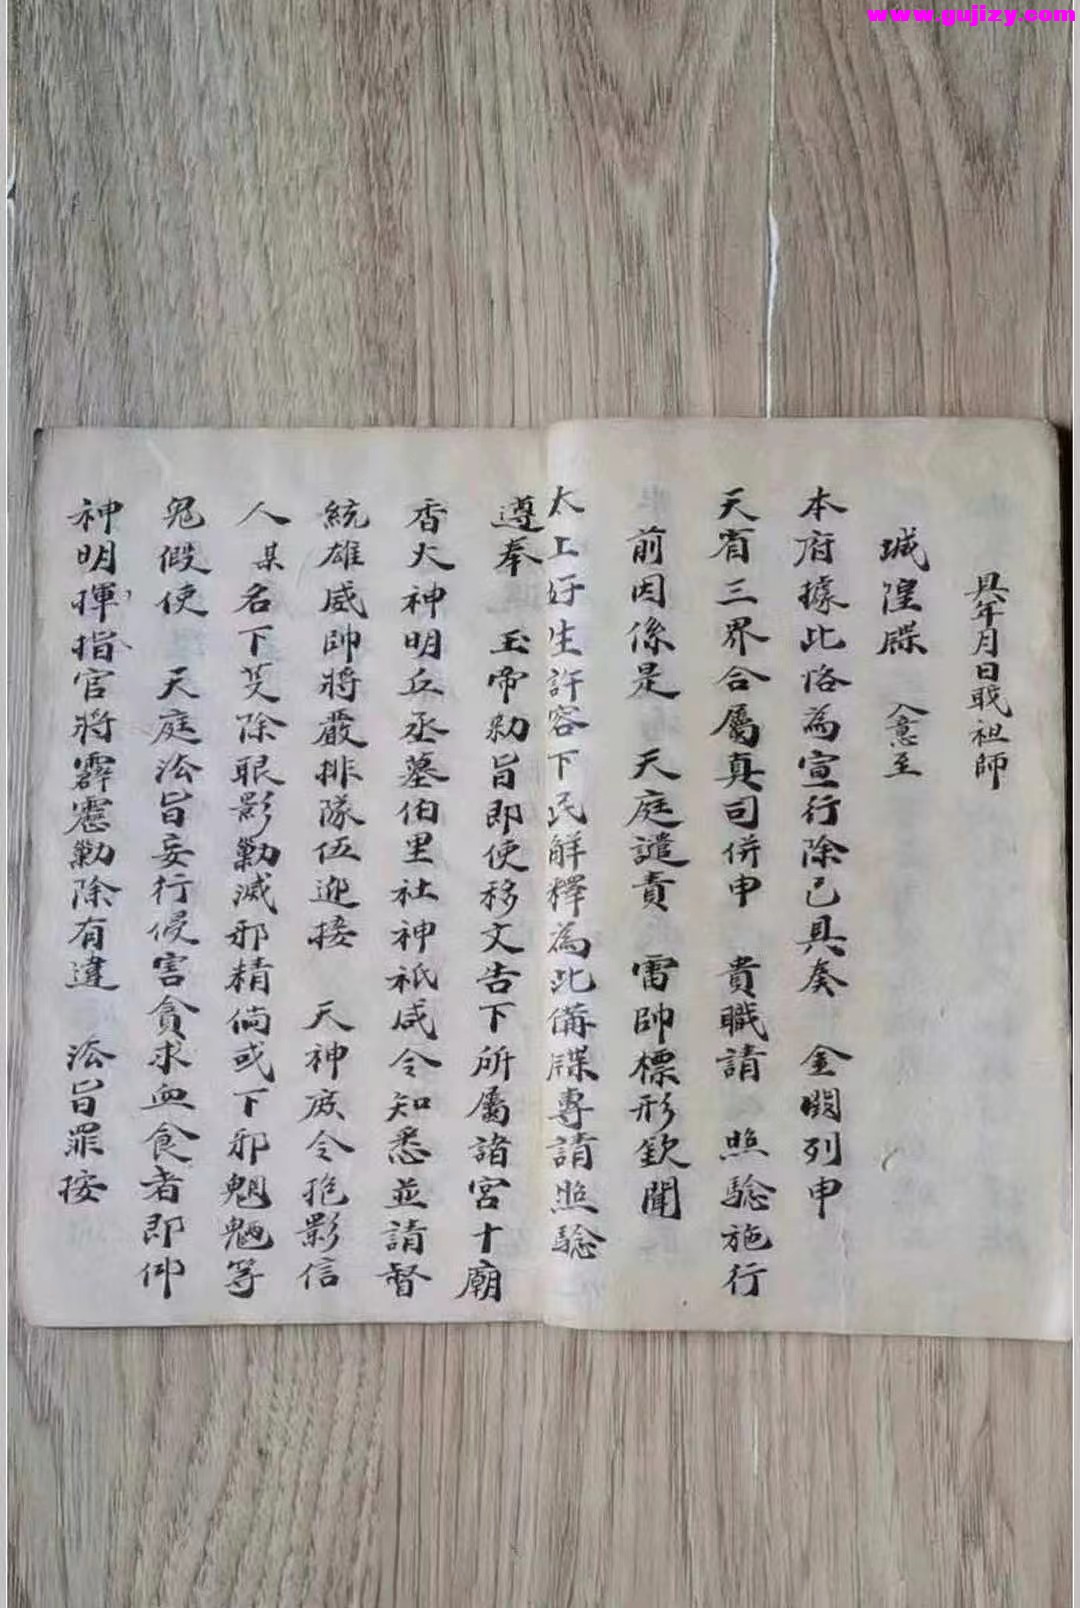 www.gujizy.com
具年月日戢祖師
城隍牒 入意至
本府據此恪為宣行除已具奏 金闕列申
天省三界合屬真司併申 貴職請 照驗施行
前因係是 天庭譴責 雷帥標形欽聞
太上好生許容下民解釋為此備牒專請照驗
遵奉 玉帝勅旨即使移文告下所屬諸宮十廟
香火神明丘丞墓伯里社神祇咸令知悉並請督
統雄威帥將嚴排隊伍迎接 天神庶令抱影信
人某名下芟除眼影勦滅邪精倘或下邪魍魎等
鬼假使 天庭法旨妄行侵害貪求血食者即仰
神明揮指官將霹靂勦除有違 法旨罪按